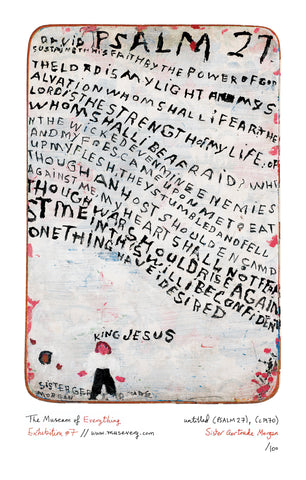 DAVID PSALM 27.
SUSTAINETH HIS FAITH BY THE POWER OF GOD
THE LORD IS MY LIGHT AND MY S
ALVATION WHOM SHALL I FEAR THE
LORD IS THE STRENGTH OF MY LIFE. OF
WHOM SHALL I BE AFRAID? WHE
N THE WICKED EVEN MINE ENEMIES
AND MY FOES CAME UPON ME TO EAT
UP MY FLESH. THEY STUMBLED AND FELL
THOUGH AN HOST SHOULD ENCAMP
AGAINST ME, MY HEART SHALL NOT FEAR
THOUGH WAR SHOULD RISE AGAIN
ST ME IN THIS WILL I BE CONFIDENT
ONE THING HAVE I DESIRED
KING JESUS
SISTER GER
MORGAN
The Museum of Everything
Exhibition #7 // www.musevery.com
untitled (PSALM 27), (c1970)
Sister Gertrude Morgan
/100